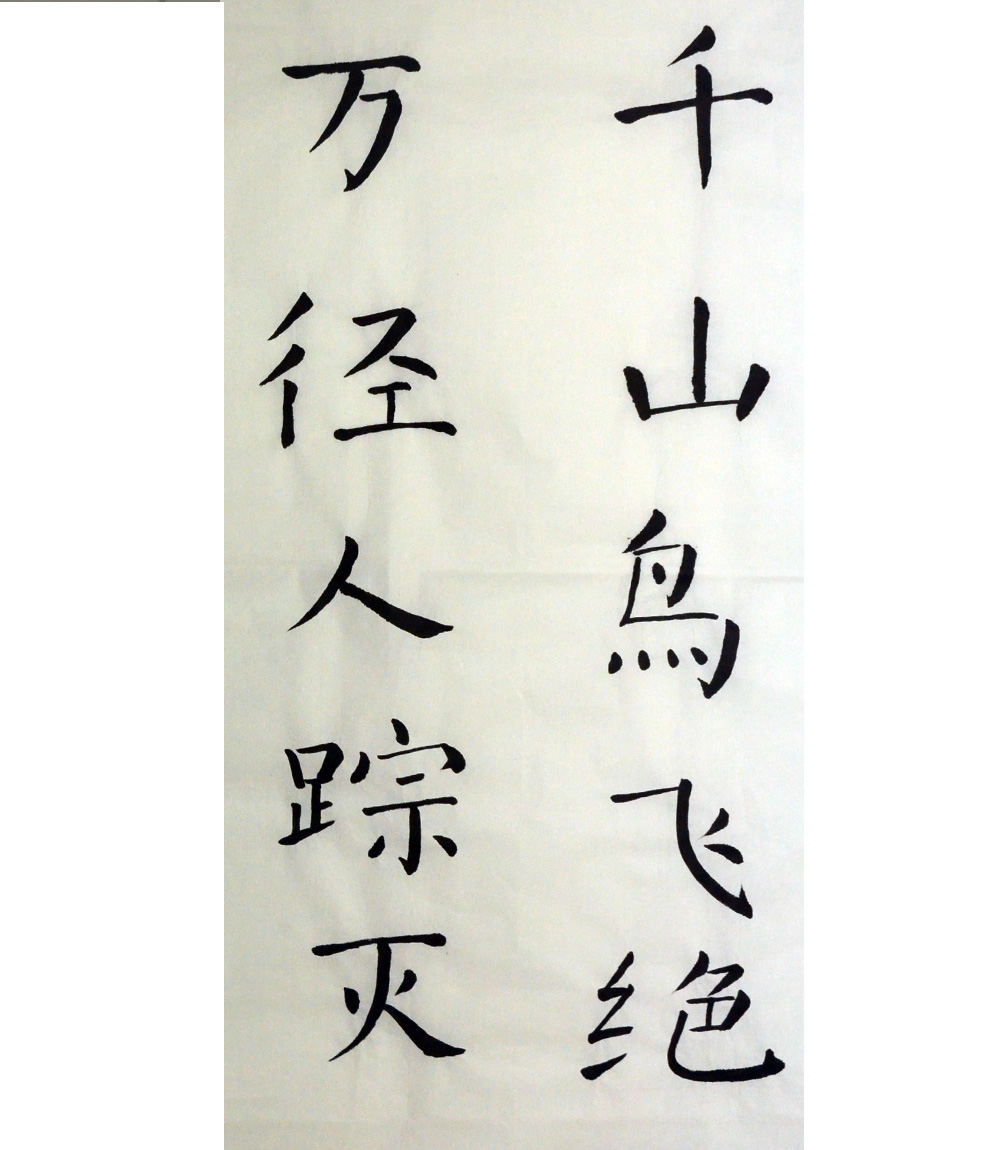 千山鸟飞绝
万径人踪灭